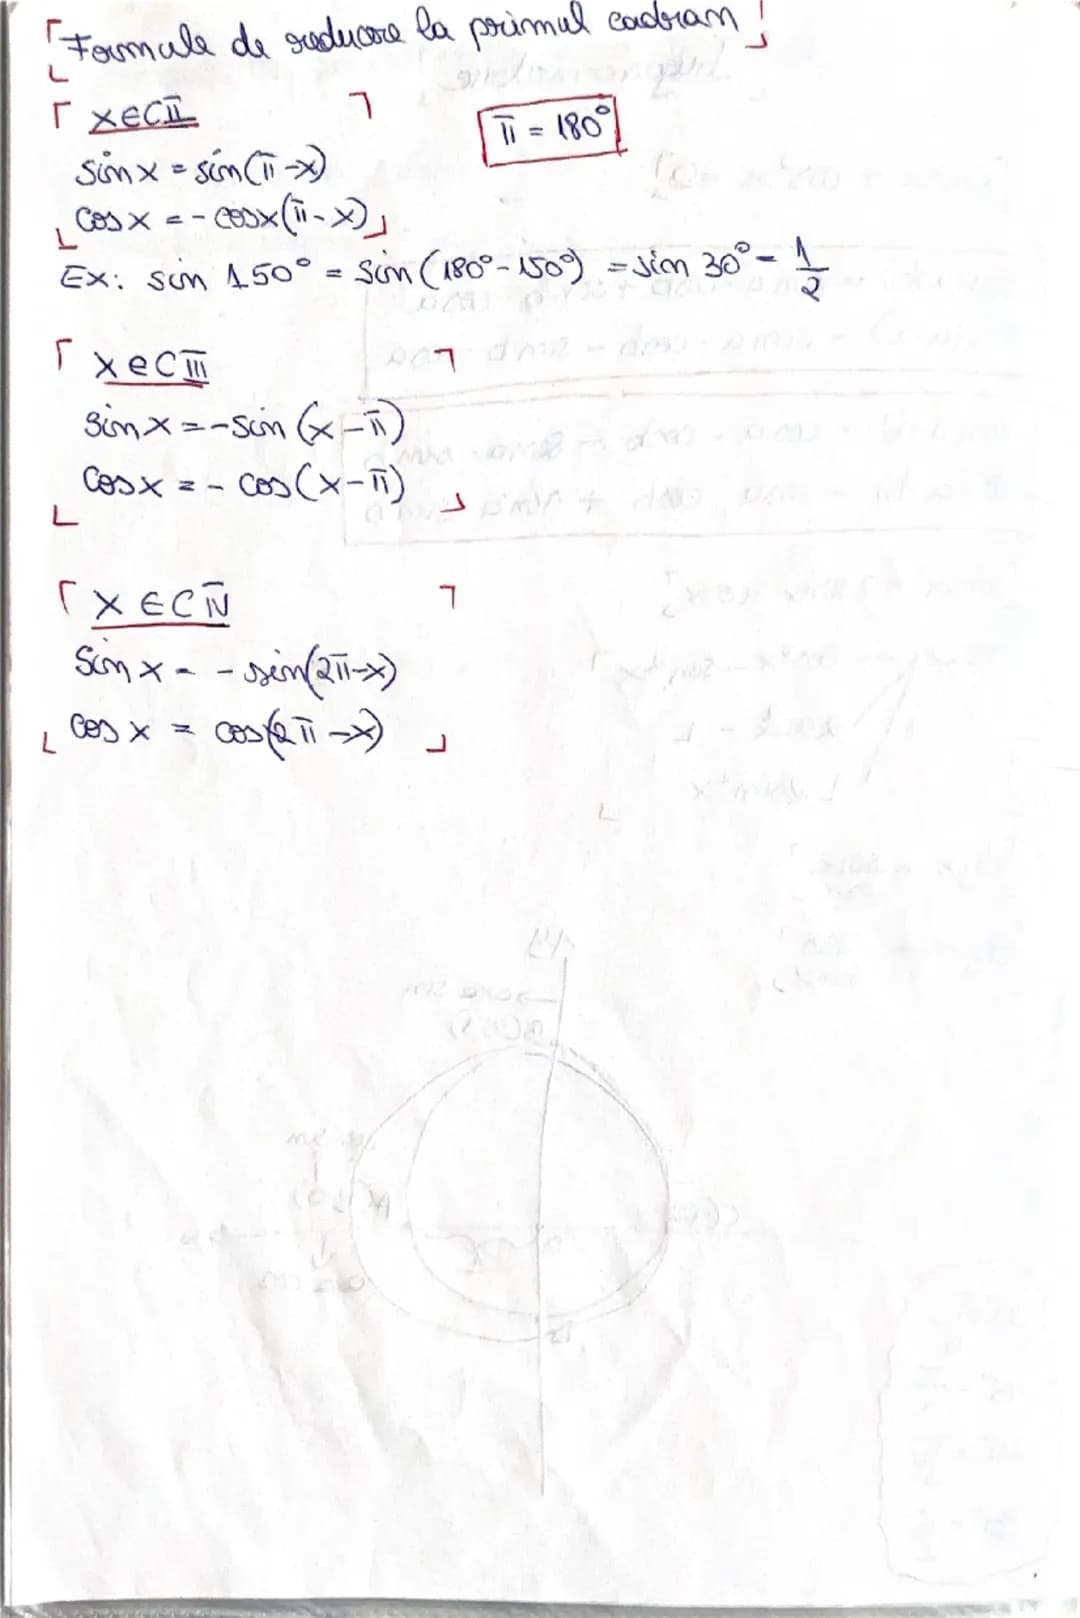 Formule de reducere la primul cadran!
x∈C II
π = 180°
sin x = sin(π-x)
cos x = - cosx(π-x)
Ex: sin 150° = sin (180°-150°) = sin 30° = 1/2
x∈C III
sin x = -sin (x-π)
cos x = - cos(x-π)
x∈C IV
sin x = - sin(2π-x)
cos x = cos(2π-x)